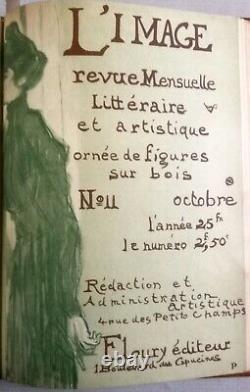 L'IMAGE
revue Mensuelle
Littéraire
et artistique
ornée de figures
sur bois
No 11 octobre
l'année 25f
le numéro 2f,50c
Rédaction et
Administration
artistique
4 rue des Petits Champs
Floury éditeur
1 Boulevard des Capucines
P